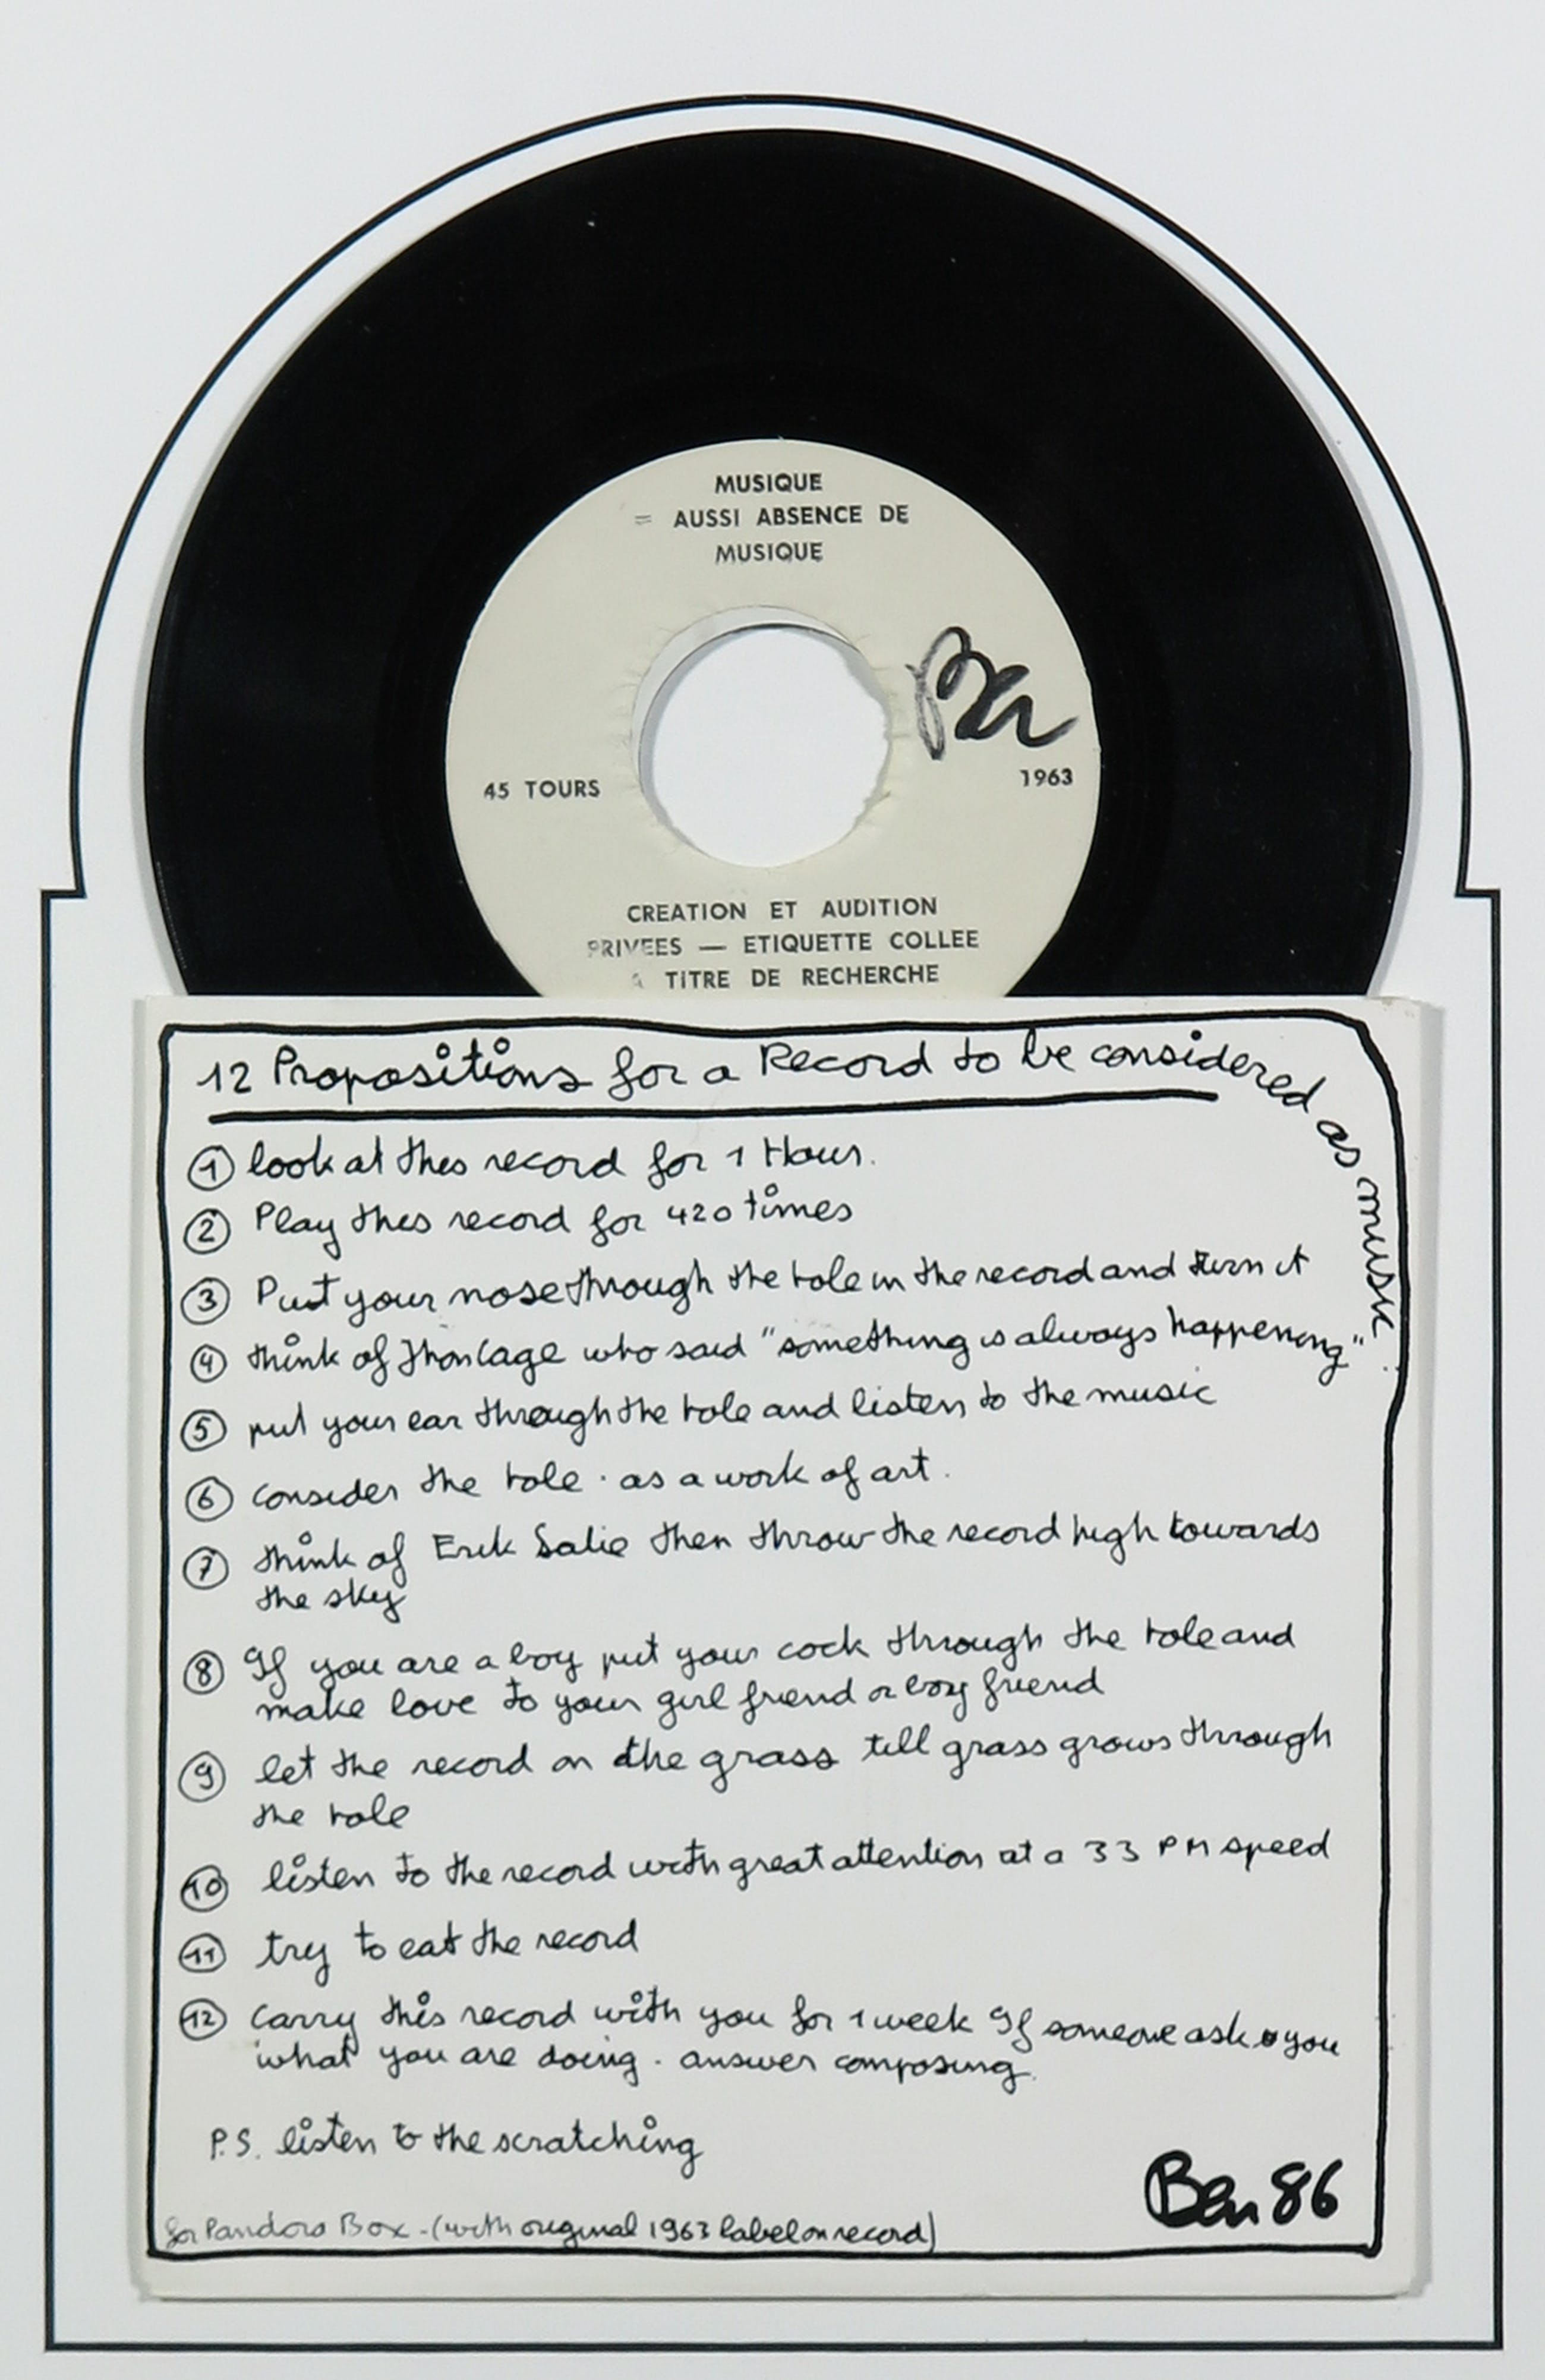 MUSIQUE
= AUSSI ABSENCE DE
MUSIQUE
Ben
45 TOURS
1963
CREATION ET AUDITION
PRIVEES — ETIQUETTE COLLEE
A TITRE DE RECHERCHE
12 Propositions for a Record to be considered as music
① look at thes record for 1 Hour.
② Play thes record for 420 times
③ Put your nose through the hole in the record and turn it
④ think of Jhon Cage who said "something is always happening"
⑤ put your ear through the hole and listen to the music
⑥ consider the hole. as a work of art.
⑦ think of Erik Satie then throw the record high towards
the sky
⑧ If you are a boy put your cock through the hole and
make love to your girl friend or boy friend
⑨ let the record on the grass till grass grows through
the hole
⑩ listen to the record with great attention at a 33 PM speed
⑪ try to eat the record
⑫ Carry this record with you for 1 week If someone asks you
what you are doing. answer composing.
P.S. listen to the scratching
Ben 86
for Pandora Box - (with original 1963 label on record)